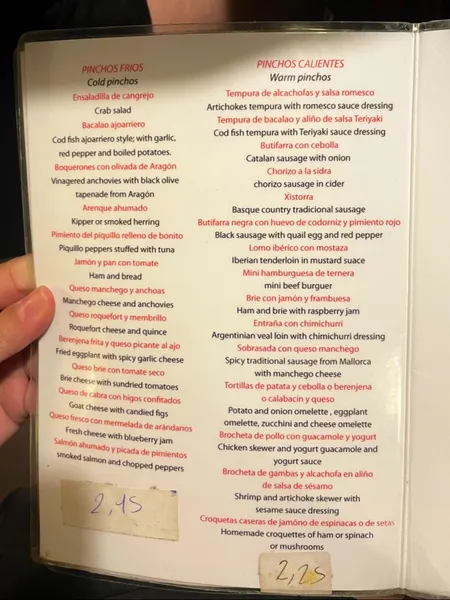 PINCHOS FRIOS
Cold pinchos
Ensaladilla de cangrejo
Crab salad
Bacalao ajoarriero
Cod fish ajoarriero style; with garlic,
red pepper and boiled potatoes.
Boquerones con olivada de Aragón
Vinagered anchovies with black olive
tapenade from Aragón
Arenque ahumado
Kipper or smoked herring
Pimiento del piquillo relleno de bonito
Piquillo peppers stuffed with tuna
Jamón y pan con tomate
Ham and bread
Queso manchego y anchoas
Manchego cheese and anchovies
Queso roquefort y membrillo
Roquefort cheese and quince
Berenjena frita y queso picante al ajo
Fried eggplant with spicy garlic cheese
Queso brie con tomate seco
Brie cheese with sundried tomatoes
Queso de cabra con higos confitados
Goat cheese with candied figs
Queso fresco con mermelada de arándanos
Fresh cheese with blueberry jam
Salmón ahumado y picada de pimientos
smoked salmon and chopped peppers
2,45
PINCHOS CALIENTES
Warm pinchos
Tempura de alcachofas y salsa romesco
Artichokes tempura with romesco sauce dressing
Tempura de bacalao y aliño de salsa Teriyaki
Cod fish tempura with Teriyaki sauce dressing
Butifarra con cebolla
Catalan sausage with onion
Chorizo a la sidra
chorizo sausage in cider
Xistorra
Basque country tradicional sausage
Butifarra negra con huevo de codorniz y pimiento rojo
Black sausage with quail egg and red pepper
Lomo ibérico con mostaza
Iberian tenderloin in mustard suace
Mini hamburguesa de ternera
mini beef burguer
Brie con jamón y frambuesa
Ham and brie with raspberry jam
Entraña con chimichurri
Argentinian veal loin with chimichurri dressing
Sobrasada con queso manchego
Spicy traditional sausage from Mallorca
with manchego cheese
Tortillas de patata y cebolla o berenjena
o calabacin y queso
Potato and onion omelette , eggplant
omelette, zucchini and cheese omelette
Brocheta de pollo con guacamole y yogurt
Chicken skewer and yogurt guacamole and
yogurt sauce
Brocheta de gambas y alcachofa en aliño
de salsa de sésamo
Shrimp and artichoke skewer with
sesame sauce dressing
Croquetas caseras de jamóno de espinacas o de setas
Homemade croquettes of ham or spinach
or mushrooms
2,25